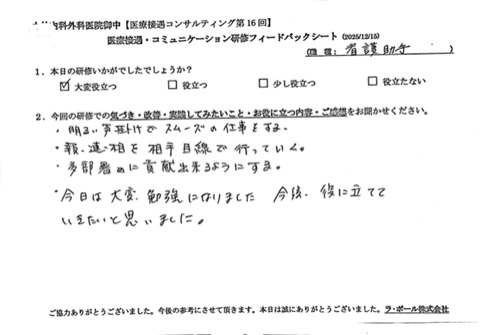 内科外科医院御中【医療接遇コンサルティング第16回】
医療接遇・コミュニケーション研修フィードバックシート (2025/12/15)
(職種: 看護助手 )
1．本日の研修いかがでしたでしょうか？
☑ 大変役立つ □ 役立つ □ 少し役立つ □ 役立たない
2．今回の研修での気づき・改善・実践してみたいこと・お役に立つ内容・ご感想をお聞かせください。
・明るい声掛けでスムーズの仕事をする。
・報、連、相を相手目線で行っていく。
・多部署めに貢献出来るようにする。
・今日は大変、勉強になりました 今後、役に立てて
いきたいと思いました。
ご協力ありがとうございました。今後の参考にさせて頂きます。本日は誠にありがとうございました。ラ・ポール株式会社